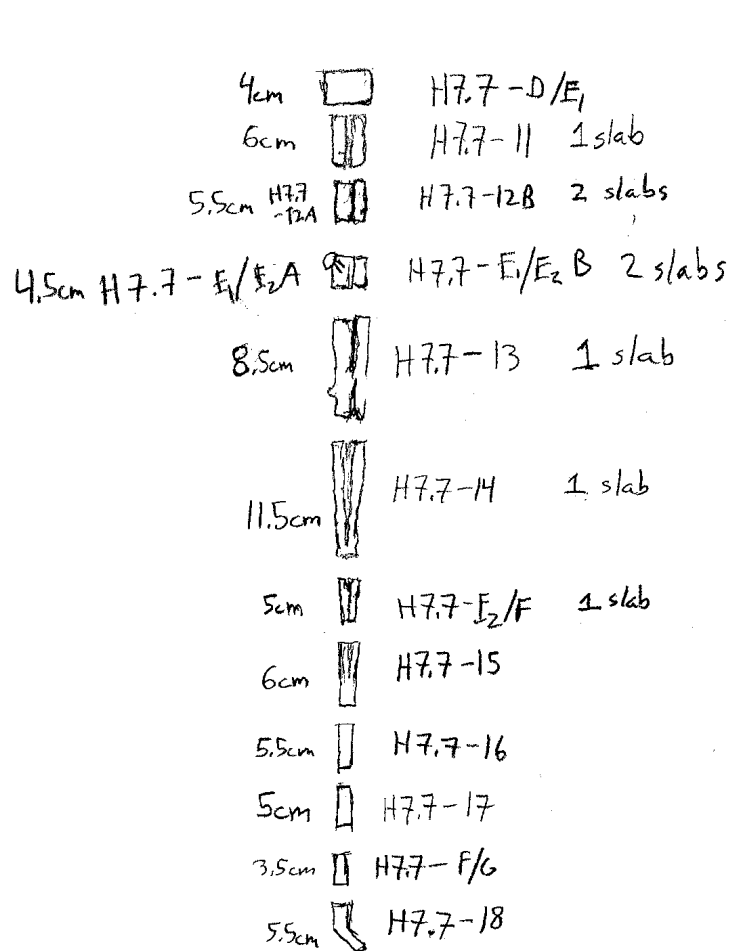 4cm H7.7-D/E1
6cm H7.7-11 1 slab
5.5cm H7.7-12A H7.7-12B 2 slabs
4.5cm H7.7-E1/E2A H7.7-E1/E2 B 2 slabs
8.5cm H7.7-13 1 slab
11.5cm H7.7-14 1 slab
5cm H7.7-E2/F 1 slab
6cm H7.7-15
5.5cm H7.7-16
5cm H7.7-17
3.5cm H7.7-F/G
5.5cm H7.7-18